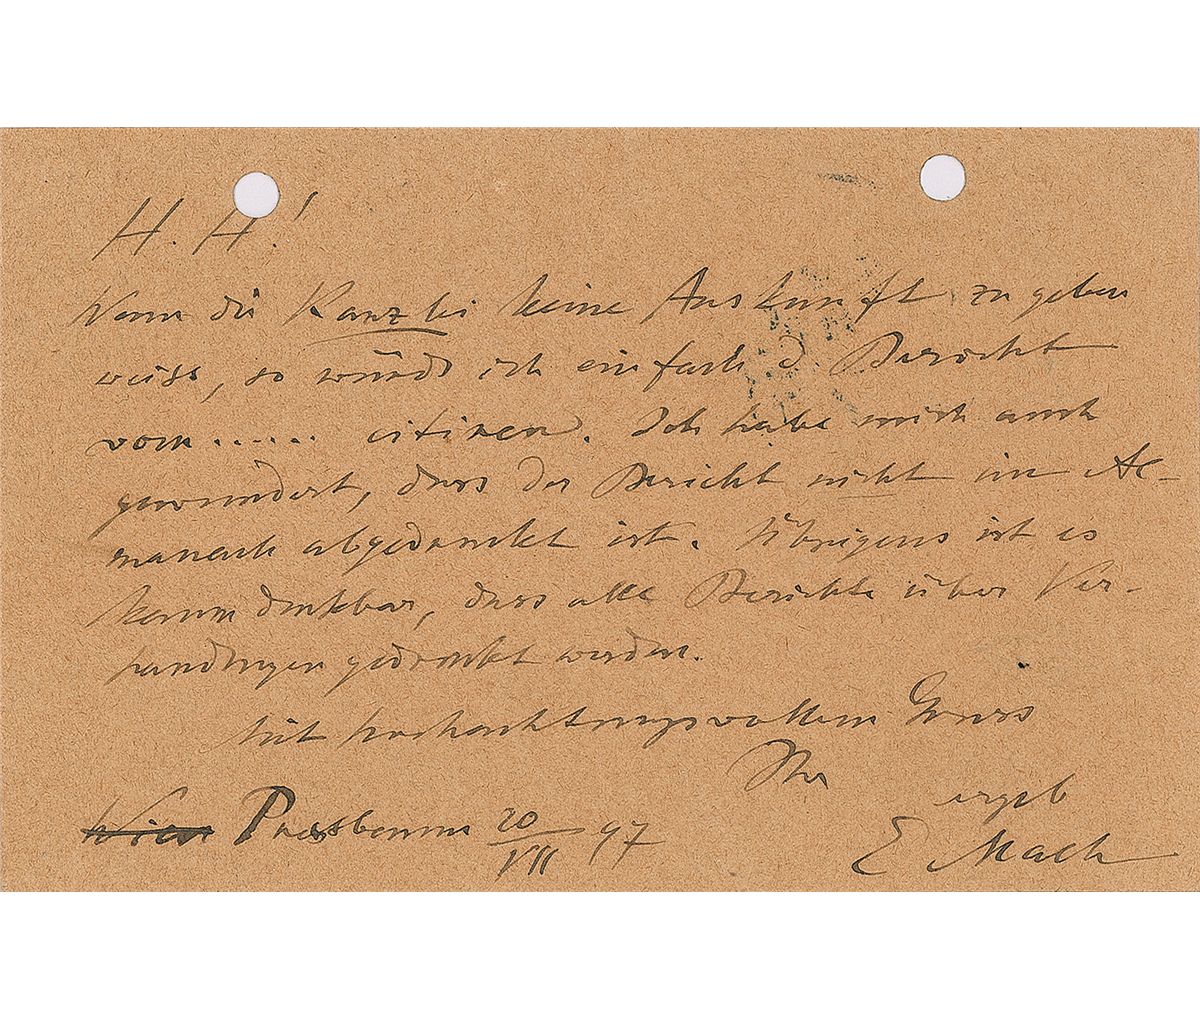 H. H.!
Wenn die Kanzlei keine Auskunft zu geben
weiss, so würde ich einfach d Bericht
vom ...... citiren. Ich habe mich auch
gewundert, dass der Bericht nicht im Al-
manach abgedruckt ist. Übrigens ist es
kaum denkbar, dass alle Berichte über Ver-
handlungen gedruckt werden.
Mit hochachtungsvollem Gruss
Ihr
ergeb
Wien 20/VII 97
E Mach